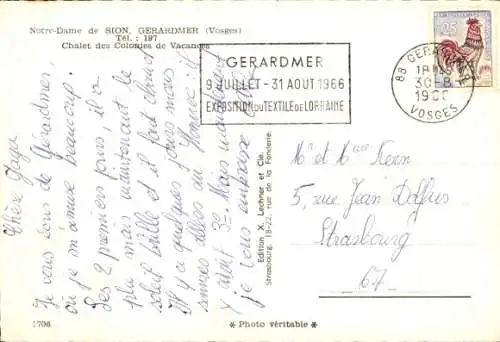 Notre-Dame de SION, GERARDMER (Vosges)
Tél. : 197
Chalet des Colonies de Vacances
GERARDMER
9 JUILLET - 31 AOUT 1966
EXPOSITION DU TEXTILE DE LORRAINE
25
88 GERARDMER
30-8
1966
VOSGES
Chère
Je vous écris de Gérardmer,
où je m'amuse beaucoup.
Les 2 premiers jours, il a
plu mais maintenant le
soleil brille et il fait chaud
Il y a quelques jours nous
sommes allés au
y avait 3°. Mais maintenant
je vous embrasse
Edition X. Lechner et Cie.
Strasbourg, 18-22, rue de la Fonderie.
Mr et Mme Kern
5, rue Jean Dollfus
Strasbourg
67
1706
* Photo véritable *